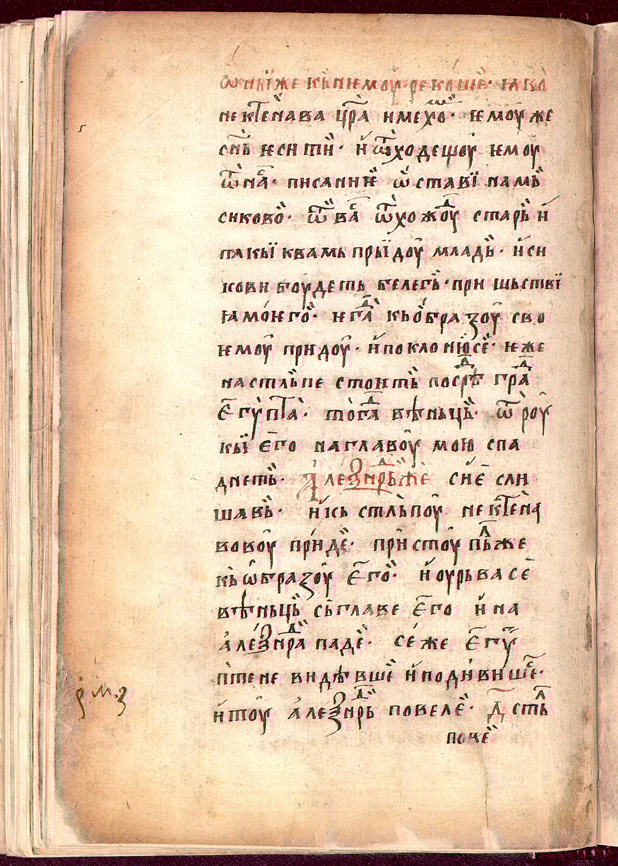 ѡнїи же къ нѥмоу рекоше· ꙗко
нектенава цр҃а имехо· ѥмоу же
сн҃ь ѥси ти· и ѿходещоу ѥмоу
ѿ на· писаниѥ ѡстави намь
сиково· ѿ ва ѿхождоу старь и
пакы к вамь прїидоу младь· и си
кови боудеть белегь· пришьствї
ꙗ моѥго· иѥгда кь ѡбразоу сво
ѥмоу придоу· и поклонюсе· иже
на стльпе стоить посрѣд град
Егупта· тогда вѣньць· ѿ роу
кы его на главоу мою спа
днеть· Алеѯндрь же сїе сли
шавь· и к стльпоу нектена
вовоу приде· пристоупль же
кь ѡбразоу его· и оурьва се
вѣньць сь главе его и на
алеѯндра паде· се же егу
птене видѣвше и подивише·
и тоу алеѯндрь повеле· д҃ стль
пове
рмз